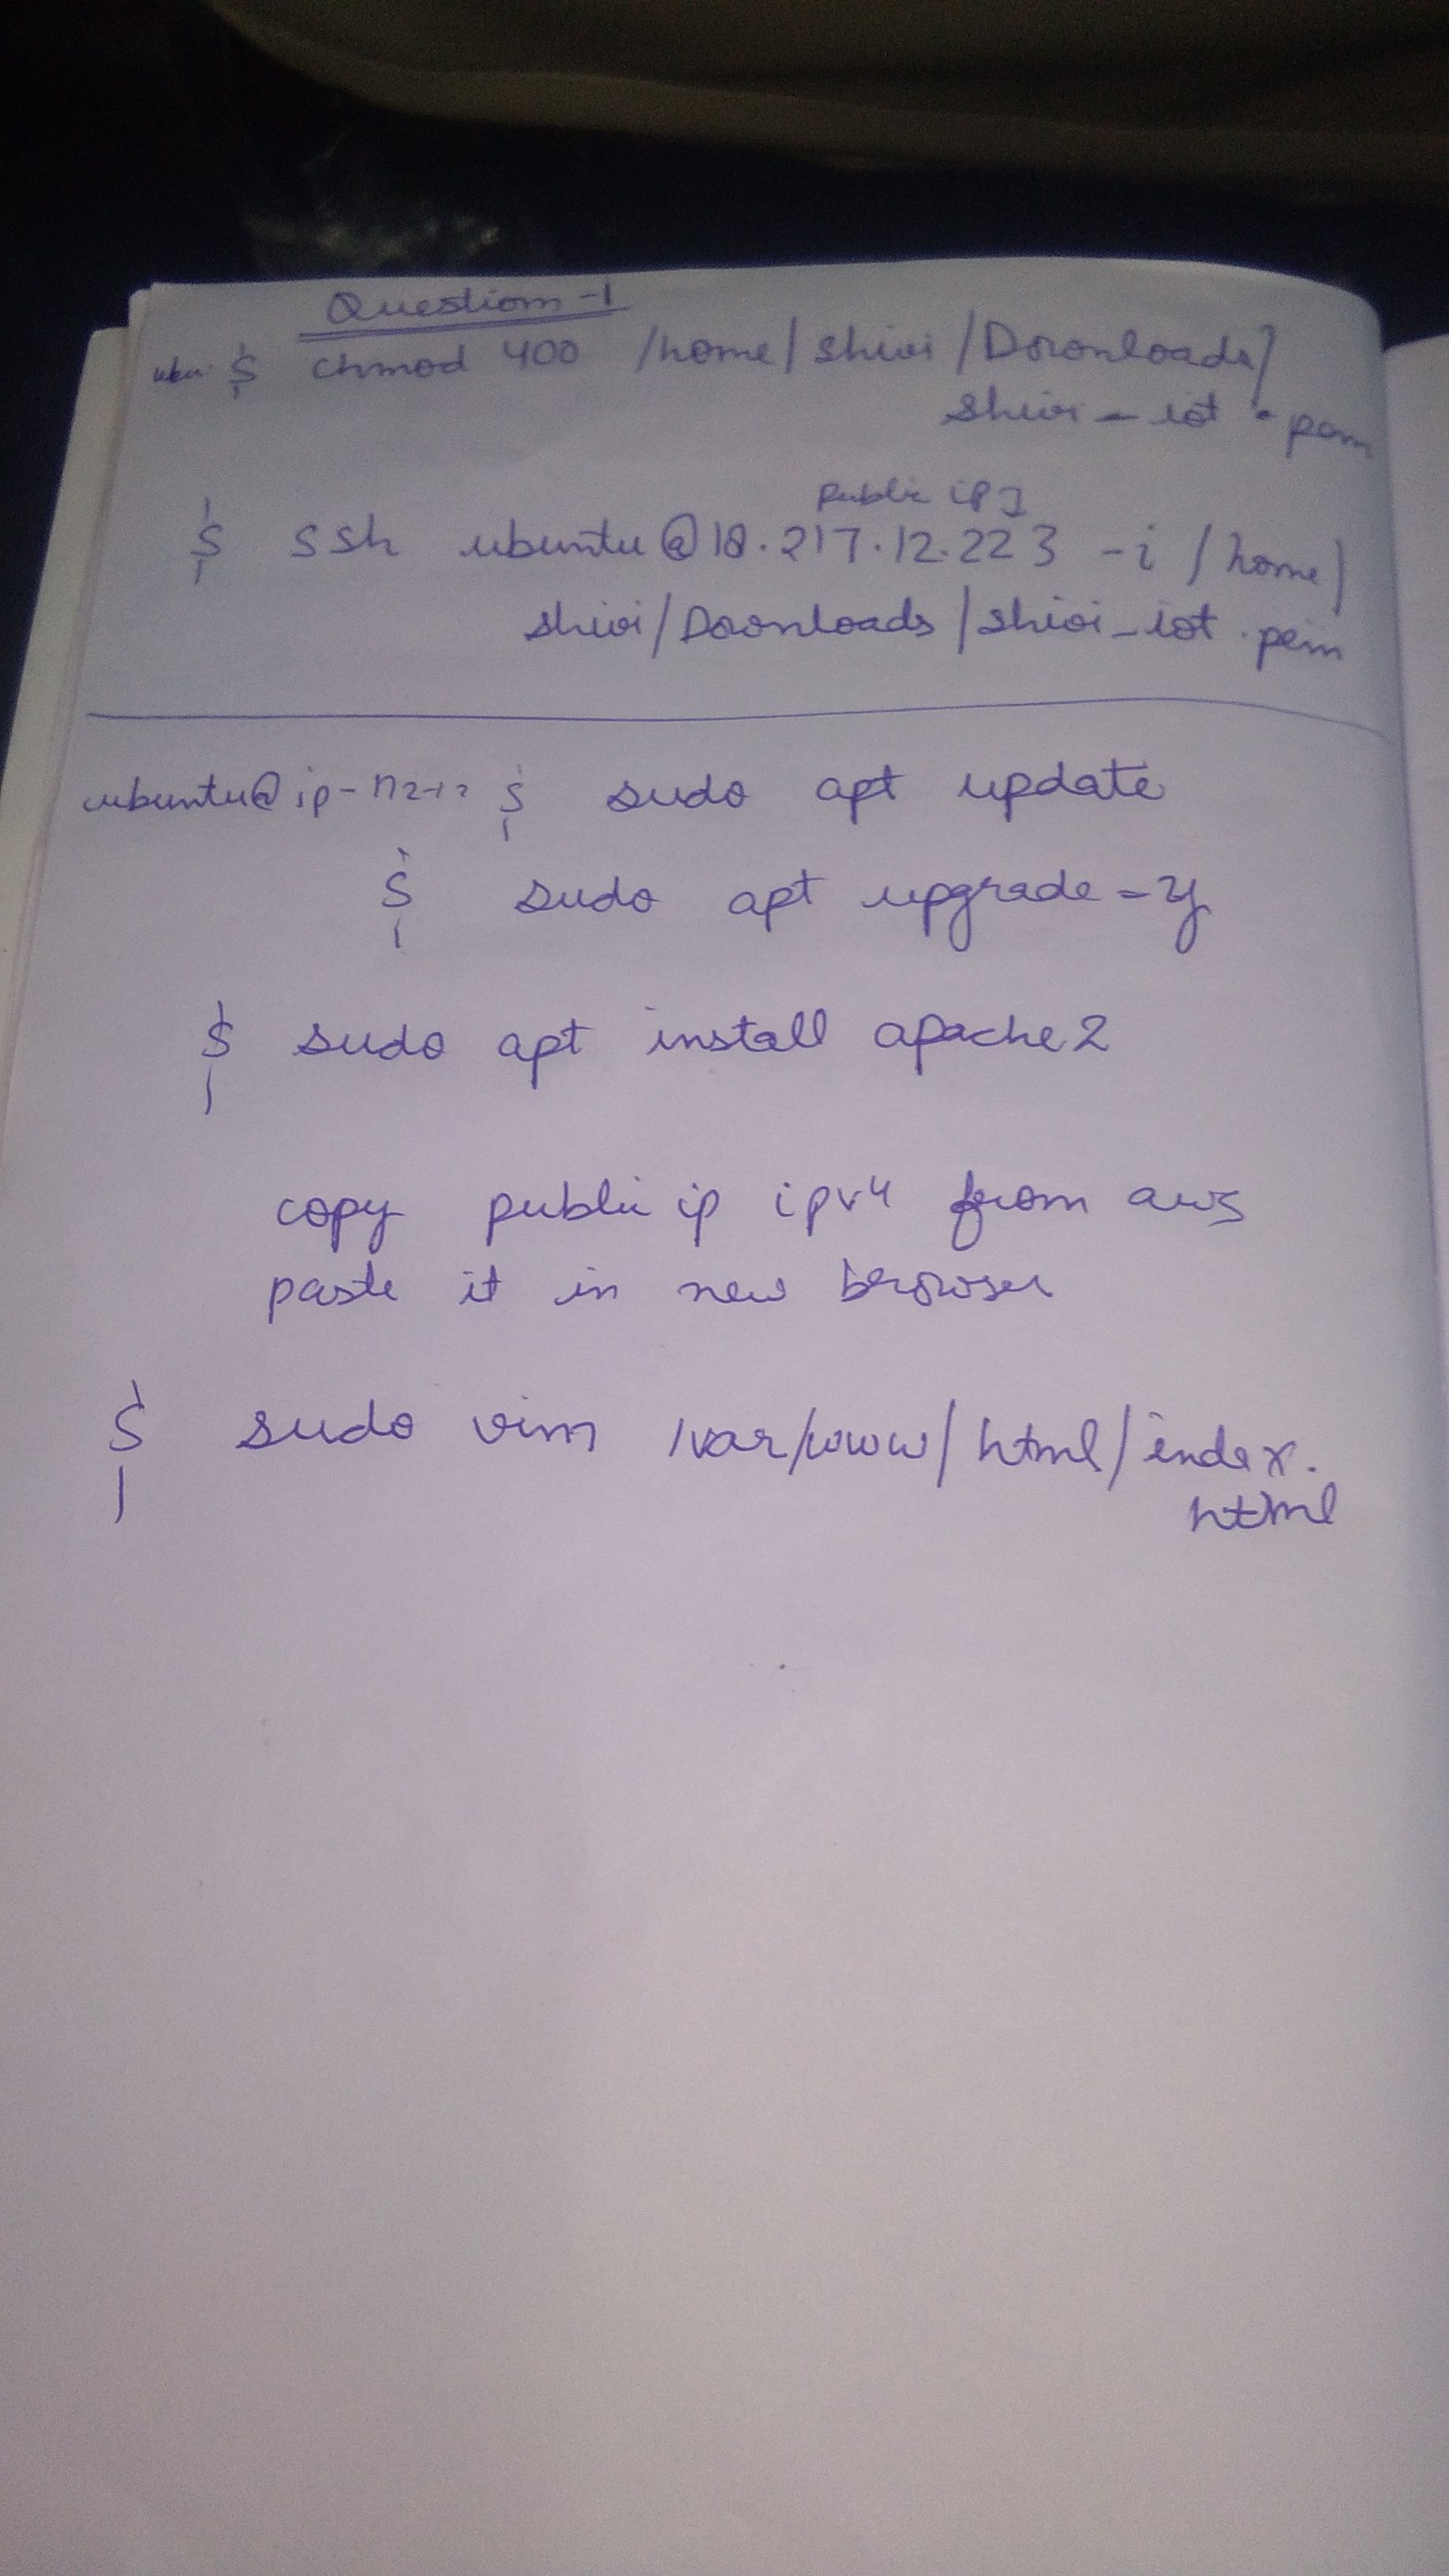 Question-1
$ chmod 400 /home/shivi/Downloads/
shivi-iot.pem
public ip]
$ ssh ubuntu@18.217.12.223 -i /home/
shivi/Downloads/shivi-iot.pem
ubuntu@ip- $ sudo apt update
$ sudo apt upgrade -y
$ sudo apt install apache2
copy public ip ipv4 from aws
paste it in new browser
$ sudo vim /var/www/html/index.
html